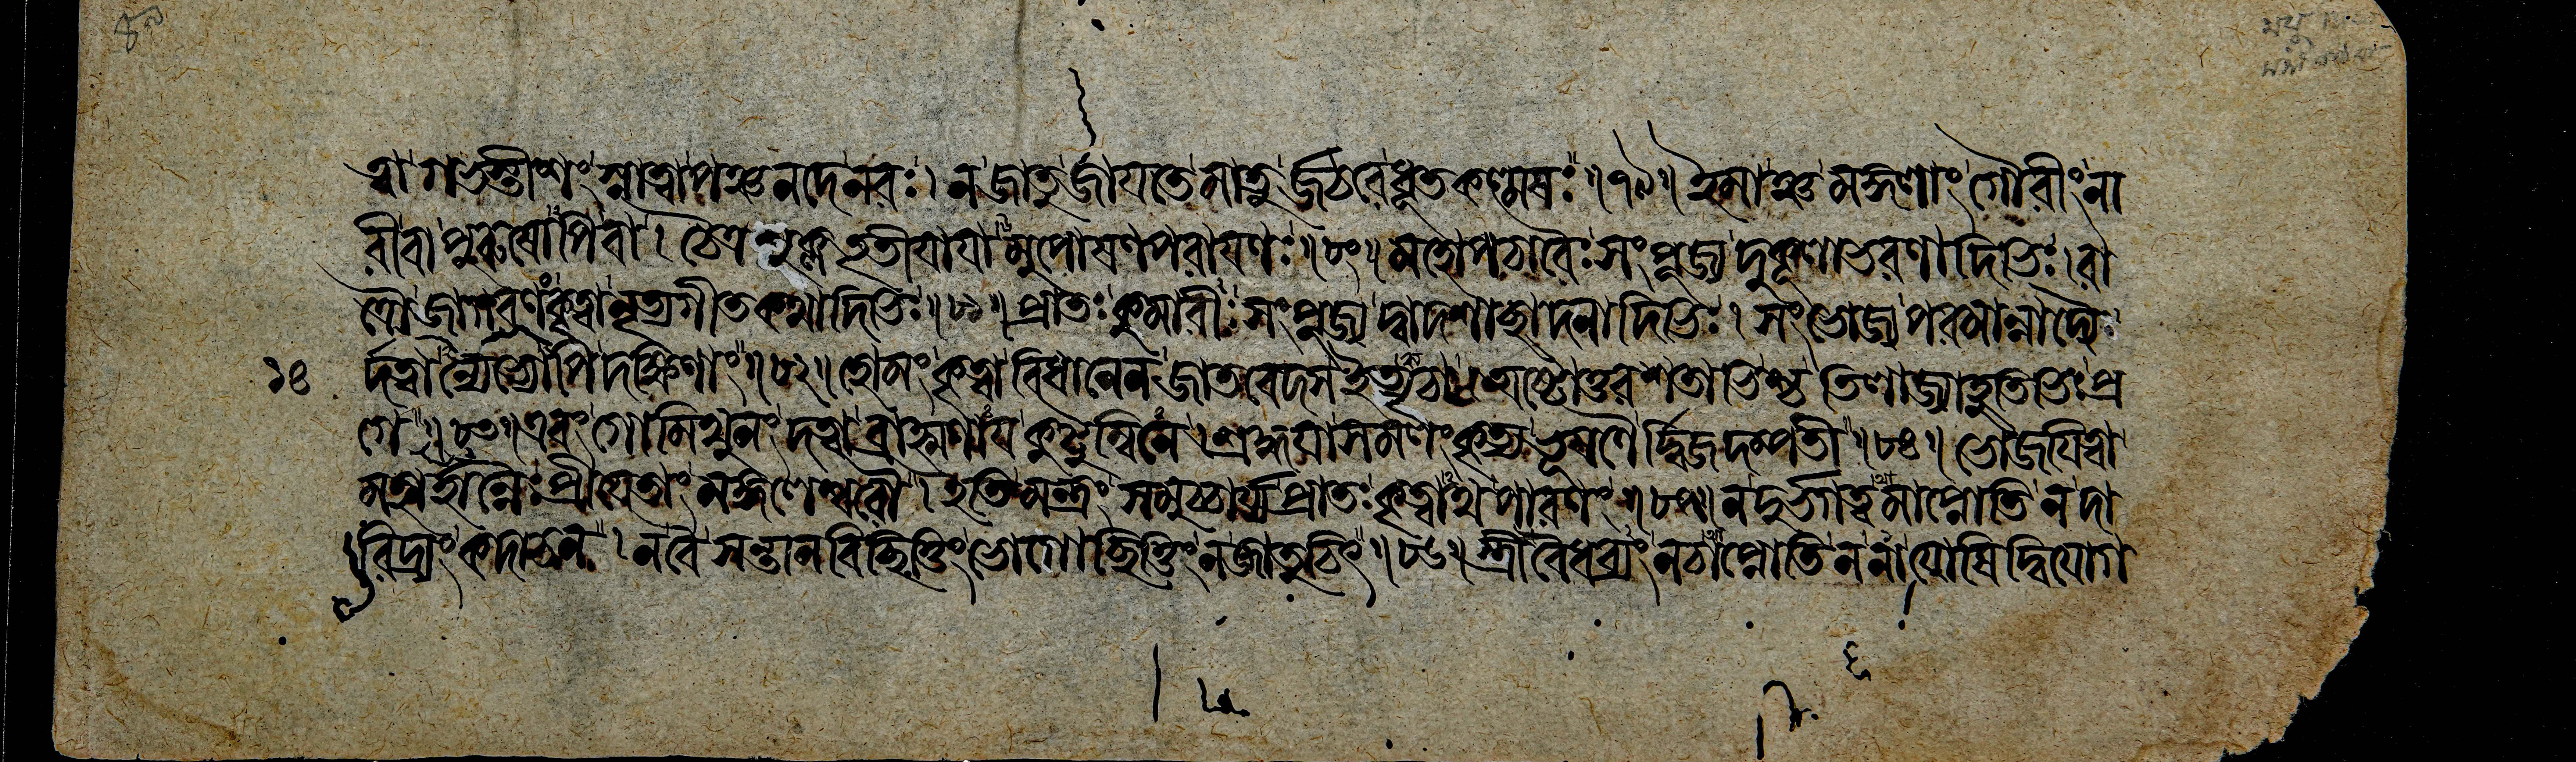 ত্বা গভস্তীশং স্নাত্বা পঞ্চনদে নরঃ। ন জাতু জায়তে মাতু র্জঠরে ধূতকল্মষঃ॥৭৯॥ ইমাঞ্চ মঙ্গলাং গৌরীং না
রী বা পুরুষোপি বা। চৈত্র শুক্ল তৃতীয়ায়া মুপোষণপরায়ণঃ॥৮০॥ মহোপচারৈঃ সংপূজ্য দুকূলাভরণাদিভিঃ। রা
ত্রৌ জাগরণং কৃত্বা নৃত্যগীতকথাদিভিঃ॥৮১॥ প্রাতঃ কুমারীঃ সংপূজ্য দ্বাদশাচ্ছাদনাদিভিঃ। সংভোজ্য পরমান্নাদ্যৈ
১৪ র্দত্বান্যেভ্যোপি দক্ষিণাং॥৮২॥ হোমং কৃত্বা বিধানেন জাতবেদস ইত্যৃচা। অষ্টোত্তরশতাভিশ্চ তিলাজ্যাহুতিভিঃ প্র
গে॥৮৩॥ এবং গোমিথুনং দত্বা ব্রাহ্মণায় কুটুম্বিনে। শ্রদ্ধয়া সমলংকৃত্য ভূষণৈ র্দ্বিজদম্পতী॥৮৪॥ ভোজয়িত্বা
মহার্হান্নৈঃ প্রীয়েতাং মঙ্গলেশ্বরৌ। ইতি মন্ত্রং সমুচ্চার্য্য প্রাতঃ কৃত্বাথ পারণং॥৮৫॥ ন দুর্ভগত্বমাপ্নোতি ন দা
রিদ্র্যং কদাচন। ন বৈ সন্তানবিচ্ছিত্তিং ভোগোচ্ছিত্তিং ন জাতুচিৎ॥৮৬॥ স্ত্রী বৈধব্যং ন চাপ্নোতি ন না যোষিদ্বিয়োগ